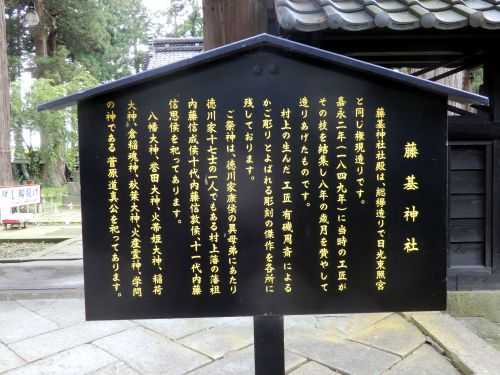 藤基神社
藤基神社社殿は、総欅造りで日光東照宮
と同じ権現造りです。
嘉永二年(一八四九年)に当時の工匠が
その技を結集し八年の歳月を費やして
造りあげたものです。
村上の生んだ工匠 有磯周斎による
かご彫りとよばれる彫刻の傑作を各所に
残しております。
ご祭神は、徳川家康侯の異母弟にあたり
徳川家十七士の一人でもある村上藩の藩祖
内藤信成侯、十代内藤信敦侯、十一代内藤
信思侯を祀ってあります。
八幡大神、誉田大神、火帯姫大神、稲荷
大神、倉稲魂神、秋葉大神、火産霊神、学問
の神である菅原道真公を祀ってあります。